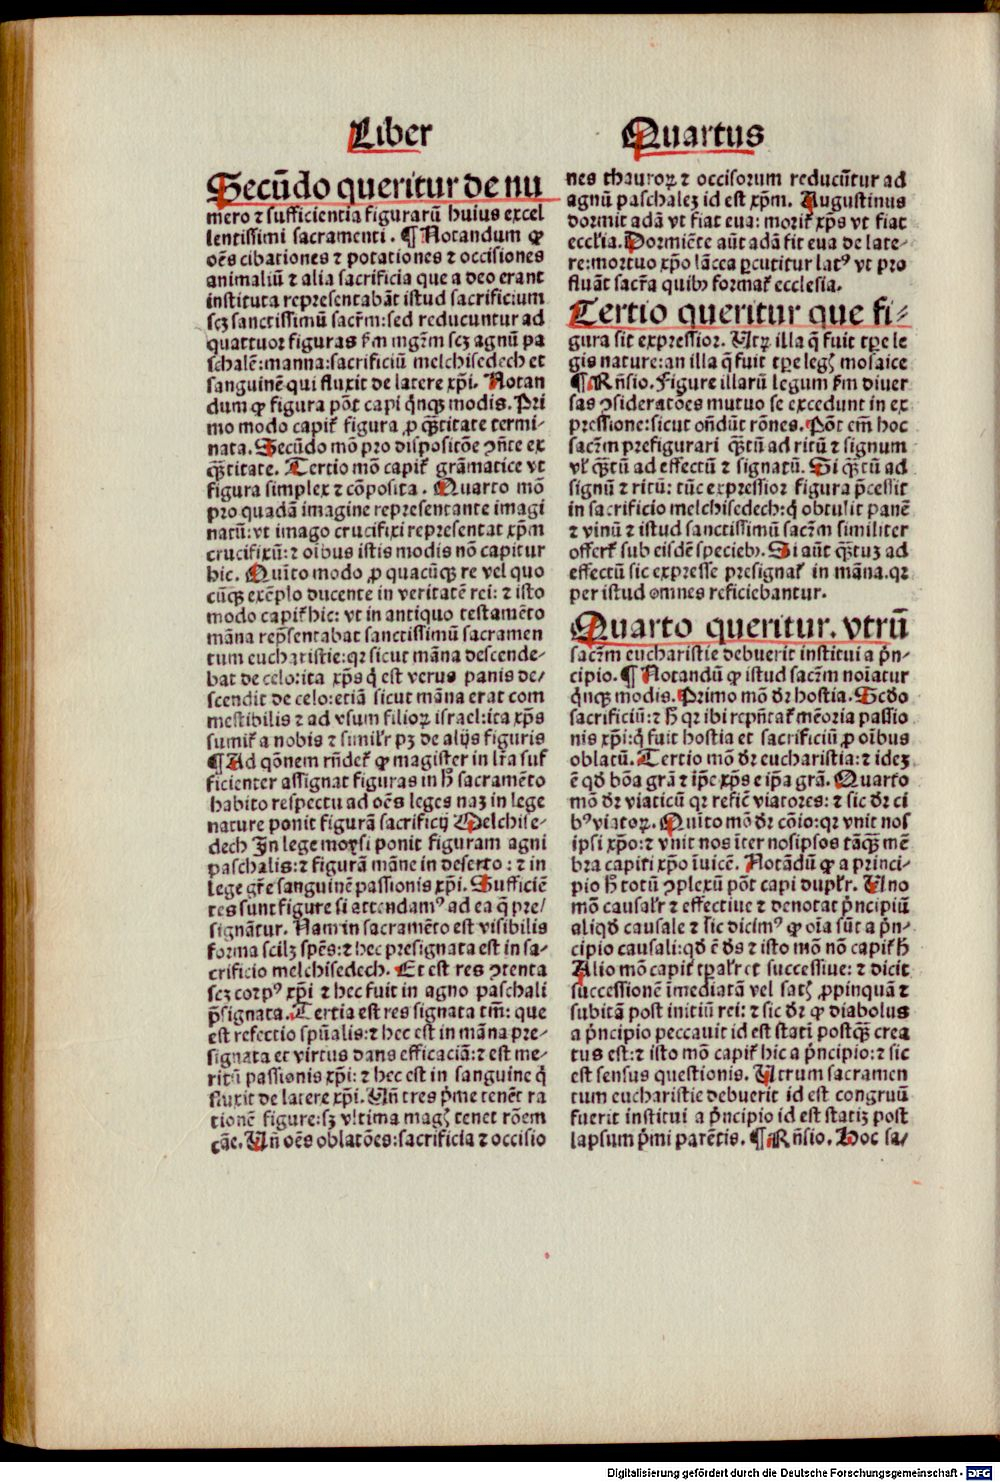 Liber
Quartus
Secūdo queritur de nu
mero ⁊ sufficientia figurarū huius excel
lentissimi sacramenti. ¶ Notandum ꝙ
oēs cibationes ⁊ potationes ⁊ occisiones
animaliū ⁊ alia sacrificia que a deo erant
instituta representabāt istud sacrificium
scꝫ sanctissimū sacr̄m: sed reducuntur ad
quattuor figuras ẜm mgr̄m scꝫ agnū pa
schalē: manna: sacrificiū melchisedech et
sanguinē qui fluxit de latere xp̄i. Notan
dum ꝙ figura pōt capi q̇nqꝫ modis. Pri
mo modo capit᷑ figura ꝓ qͣꝫtitate termi-
nata. Secūdo mō pro dispositōe ꝯn̄te ex
qͣꝫtitate. Tertio mō capit᷑ grāmatice vt
figura simplex ⁊ cōposita. Quarto mō
pro quadā imagine representante imagi
natū: vt imago crucifixi representat xp̄m
crucifixū: ⁊ oībus istis modis nō capitur
hic. Quīto modo ꝓ quacūqꝫ re vel quo
cūqꝫ exēplo ducente in veritatē rei: ⁊ isto
modo capit᷑ hic: vt in antiquo testamēto
māna rep̄sentabat sanctissimū sacramen
tum eucharistie: qꝛ sicut māna descende-
bat de celo: ita xp̄s q̇ est verus panis de/
scendit de celo: etiā sicut māna erat com
mestibilis ⁊ ad vsum filioꝝ israel: ita xp̄s
sumit᷑ a nobis ⁊ simil'r pꝫ de alijs figuris
¶ Ad qōnem rn̄det᷑ ꝙ magister in lr̄a suf
ficienter assignat figuras in h̄ sacramēto
habito respectu ad oēs leges naꝫ in lege
nature ponit figurā sacrificij Melchise-
dech In lege moysi ponit figuram agni
paschalis: ⁊ figurā māne in deserto: ⁊ in
lege gr̄e sanguinē passionis xp̄i. Sufficiē
tes sunt figure si attendamꝰ ad ea q̄ pre/
signātur. Nam in sacramēto est visibilis
forma scilꝫ spēs: ⁊ hec presignata est in sa-
crificio melchisedech. Et est res ꝯtenta
scꝫ corpꝰ xp̄i ⁊ hec fuit in agno paschali
p̄signata. Tertia est res signata tm̄: que
est refectio spūalis: ⁊ hec est in māna pre-
signata et virtus dans efficaciā: ⁊ est me-
ritū passionis xp̄i: ⁊ hec est in sanguine q̇
fluxit de latere xp̄i. Vn̄ tres ṗme tenēt ra
tionē figure: sꝫ vltima magꝭ tenet rōem
cāe. Vn̄ oēs oblatōes: sacrificia ⁊ occisio
nes thauroꝝ ⁊ occisorum reducūtur ad
agnū paschaleꝫ id est xp̄m. Augustinus
dormit adā vt fiat eua: morit᷑ xp̄s vt fiat
eccl'ia. Dormiēte aūt adā fit eua de late-
re: mortuo xp̄o lācea ꝑcutitur latꝰ vt pro
fluāt sacr̄a quibꝫ format᷑ ecclesia.
Tertio queritur que fi-
gura sit expressior. Vtꝝ illa q̄ fuit tꝑe le
gis nature: an illa q̄ fuit tꝑe legꝭ mosaice
¶ Rn̄sio. Figure illarū legum ẜm diuer
sas ꝯsideratōes mutuo se excedunt in ex
pressione: sicut on̄dūt rōnes. Pōt em̄ hoc
sacr̄m prefigurari qͣꝫtū ad ritū ⁊ signum
vl' qͣꝫtū ad effectū ⁊ signatū. Si qͣꝫtū ad
signū ⁊ ritū: tūc expressior figura p̄cessit
in sacrificio melchisedech: q̇ obtulit panē
⁊ vinū ⁊ istud sanctissimū sacr̄m similiter
offert᷑ sub eisdē speciebꝫ. Si aūt qͣꝫtuꝫ ad
effectū sic expresse presignat᷑ in māna. qꝛ
per istud omnes reficiebantur.
Quarto queritur. vtrū
sacr̄m eucharistie debuerit institui a ṗn-
cipio. ¶ Notandū ꝙ istud sacr̄m noīatur
q̇nqꝫ modis. Primo mō dr̄ hostia. Scd̄o
sacrificiū: ⁊ h̄ qꝛ ibi rep̄ntat᷑ mēoria passio
nis xp̄i: q̇ fuit hostia et sacrificiū ꝓ oībus
oblatū. Tertio mō dr̄ eucharistia: ⁊ ideꝫ
ē qd̄ bōa grā ⁊ ip̄e xp̄s e ip̄a grā. Quarto
mō dr̄ viaticū qꝛ reficē viatores: ⁊ sic dr̄ ci
bꝰ viatoꝝ. Quīto mō dr̄ cōio: qꝛ vnit nos
ipsi xp̄o: ⁊ vnit nos īter nosipsos tāqͣꝫ mē
bra capiti xp̄o īuicē. Notādū ꝙ a princi-
pio h̄ totū ꝯplexū pōt capi dupl'r. Vno
mō causal'r ⁊ effectiue ⁊ denotat ṗncipiū
aliqd̄ causale ⁊ sic dicimꝰ ꝙ oīa sūt a ṗn-
cipio causali: qd̄ ē ds̄ ⁊ isto mō nō capit᷑ h̄
Alio mō capit᷑ tꝑal'r et successiue: ⁊ dicit
successionē īmediatā vel satꝭ ꝓpinquā ⁊
subitā post initiū rei: ⁊ sic dr̄ ꝙ diabolus
a ṗncipio peccauit id est statī postqͣꝫ crea
tus est: ⁊ isto mō capit᷑ hic a ṗncipio: ⁊ sic
est sensus questionis. Vtrum sacramen
tum eucharistie debuerit id est congruū
fuerit institui a ṗncipio id est statiꝫ post
lapsum ṗmi parētis. ¶ Rn̄sio. Hoc sa/
Digitalisierung gefördert durch die Deutsche Forschungsgemeinschaft - DFG